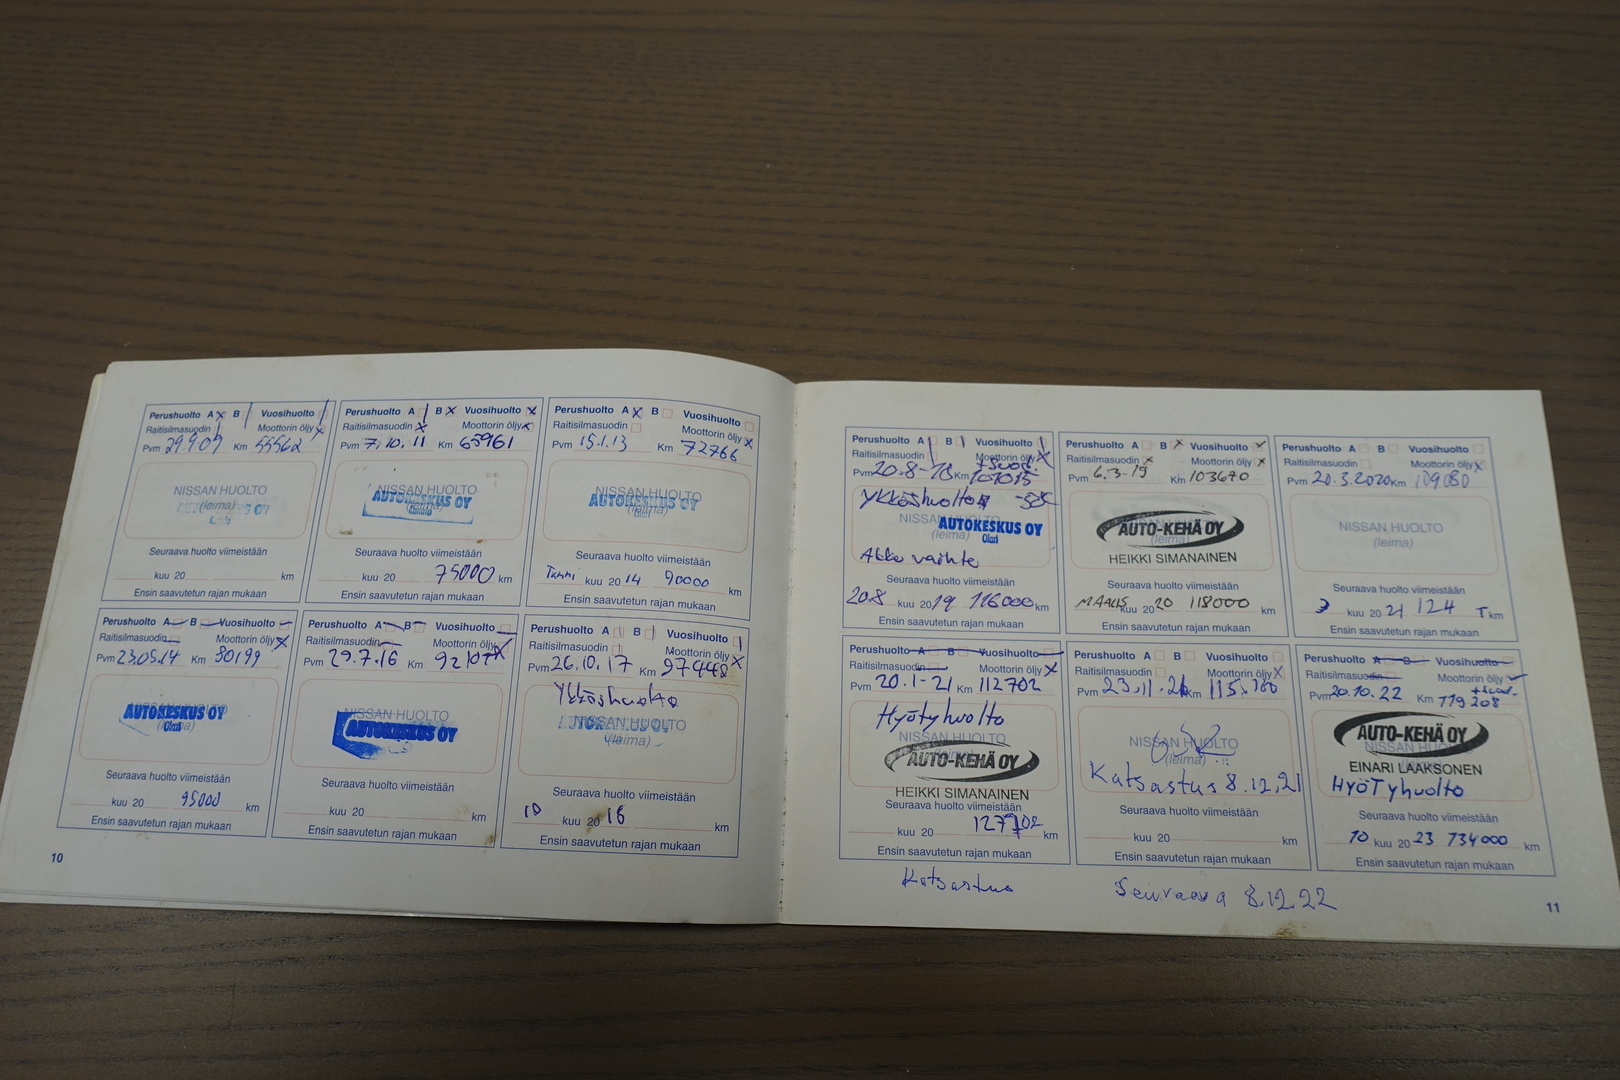 Perushuolto A x B Vuosihuolto
Raitisilmasuodin Moottorin öljy x
Pvm 29.9 09 Km 55562
NISSAN HUOLTO
(leima)
Seuraava huolto viimeistään
kuu 20 km
Ensin saavutetun rajan mukaan
Perushuolto A B x Vuosihuolto x
Raitisilmasuodin x Moottorin öljy x
Pvm 7.10.11 Km 65961
NISSAN HUOLTO
AUTOKESKUS OY
(leima)
Seuraava huolto viimeistään
kuu 20 75000 km
Ensin saavutetun rajan mukaan
Perushuolto A x B Vuosihuolto
Raitisilmasuodin Moottorin öljy x
Pvm 15.1.13 Km 72766
NISSAN HUOLTO
AUTOKESKUS OY
(leima)
Olari
Seuraava huolto viimeistään
Tammi kuu 20 14 90000 km
Ensin saavutetun rajan mukaan
Perushuolto A B Vuosihuolto
Raitisilmasuodin Moottorin öljy x
Pvm 23.05.14 Km 80199
NISSAN HUOLTO
AUTOKESKUS OY
Olari (leima)
Seuraava huolto viimeistään
kuu 20 95000 km
Ensin saavutetun rajan mukaan
Perushuolto A B Vuosihuolto
Raitisilmasuodin Moottorin öljy x
Pvm 29.7.16 Km
NISSAN HUOLTO
AUTOKESKUS OY
(leima)
Seuraava huolto viimeistään
kuu 20 km
Ensin saavutetun rajan mukaan
Perushuolto A B Vuosihuolto
Raitisilmasuodin Moottorin öljy x
Pvm 26.10.17 Km 97448
Ykköshuolto
NISSAN HUOLTO
AUTOKESKUS OY
(leima)
Seuraava huolto viimeistään
10 kuu 20 18 km
Ensin saavutetun rajan mukaan
10
Perushuolto A B Vuosihuolto
Raitisilmasuodin Moottorin öljy x
Pvm 20.8-18 Km
Ykköshuolto
NISSAN HUOLTO
AUTOKESKUS OY
(leima) Olari
Akku vaihto
Seuraava huolto viimeistään
20.8 kuu 20 19 116000 km
Ensin saavutetun rajan mukaan
Perushuolto A B x Vuosihuolto
Raitisilmasuodin x Moottorin öljy x
Pvm 6.3-19 Km 103670
AUTO-KEHÄ OY
(leima)
HEIKKI SIMANAINEN
Seuraava huolto viimeistään
MAALIS kuu 20 20 118000 km
Ensin saavutetun rajan mukaan
Perushuolto A B Vuosihuolto
Raitisilmasuodin Moottorin öljy x
Pvm 20.3.2020 Km 109080
NISSAN HUOLTO
(leima)
Seuraava huolto viimeistään
3 kuu 20 21 124 T km
Ensin saavutetun rajan mukaan
Perushuolto A B Vuosihuolto
Raitisilmasuodin Moottorin öljy x
Pvm 20.1-21 Km 112702
Hyötyhuolto
NISSAN HUOLTO
AUTO-KEHÄ OY
HEIKKI SIMANAINEN
Seuraava huolto viimeistään
kuu 20 127702 km
Ensin saavutetun rajan mukaan
Katsastus
Perushuolto A B Vuosihuolto
Raitisilmasuodin Moottorin öljy x
Pvm 23.11.21 Km
NISSAN HUOLTO
(leima)
Katsastus 8.12.21
Seuraava huolto viimeistään
kuu 20 km
Ensin saavutetun rajan mukaan
Seuraava 8.12.22
Perushuolto A B Vuosihuolto
Raitisilmasuodin Moottorin öljy
Pvm 20.10.22 Km 119208
AUTO-KEHÄ OY
NISSAN HUOLTO
EINARI LAAKSONEN
HYÖTyhuolto
Seuraava huolto viimeistään
10 kuu 20 23 134000 km
Ensin saavutetun rajan mukaan
11